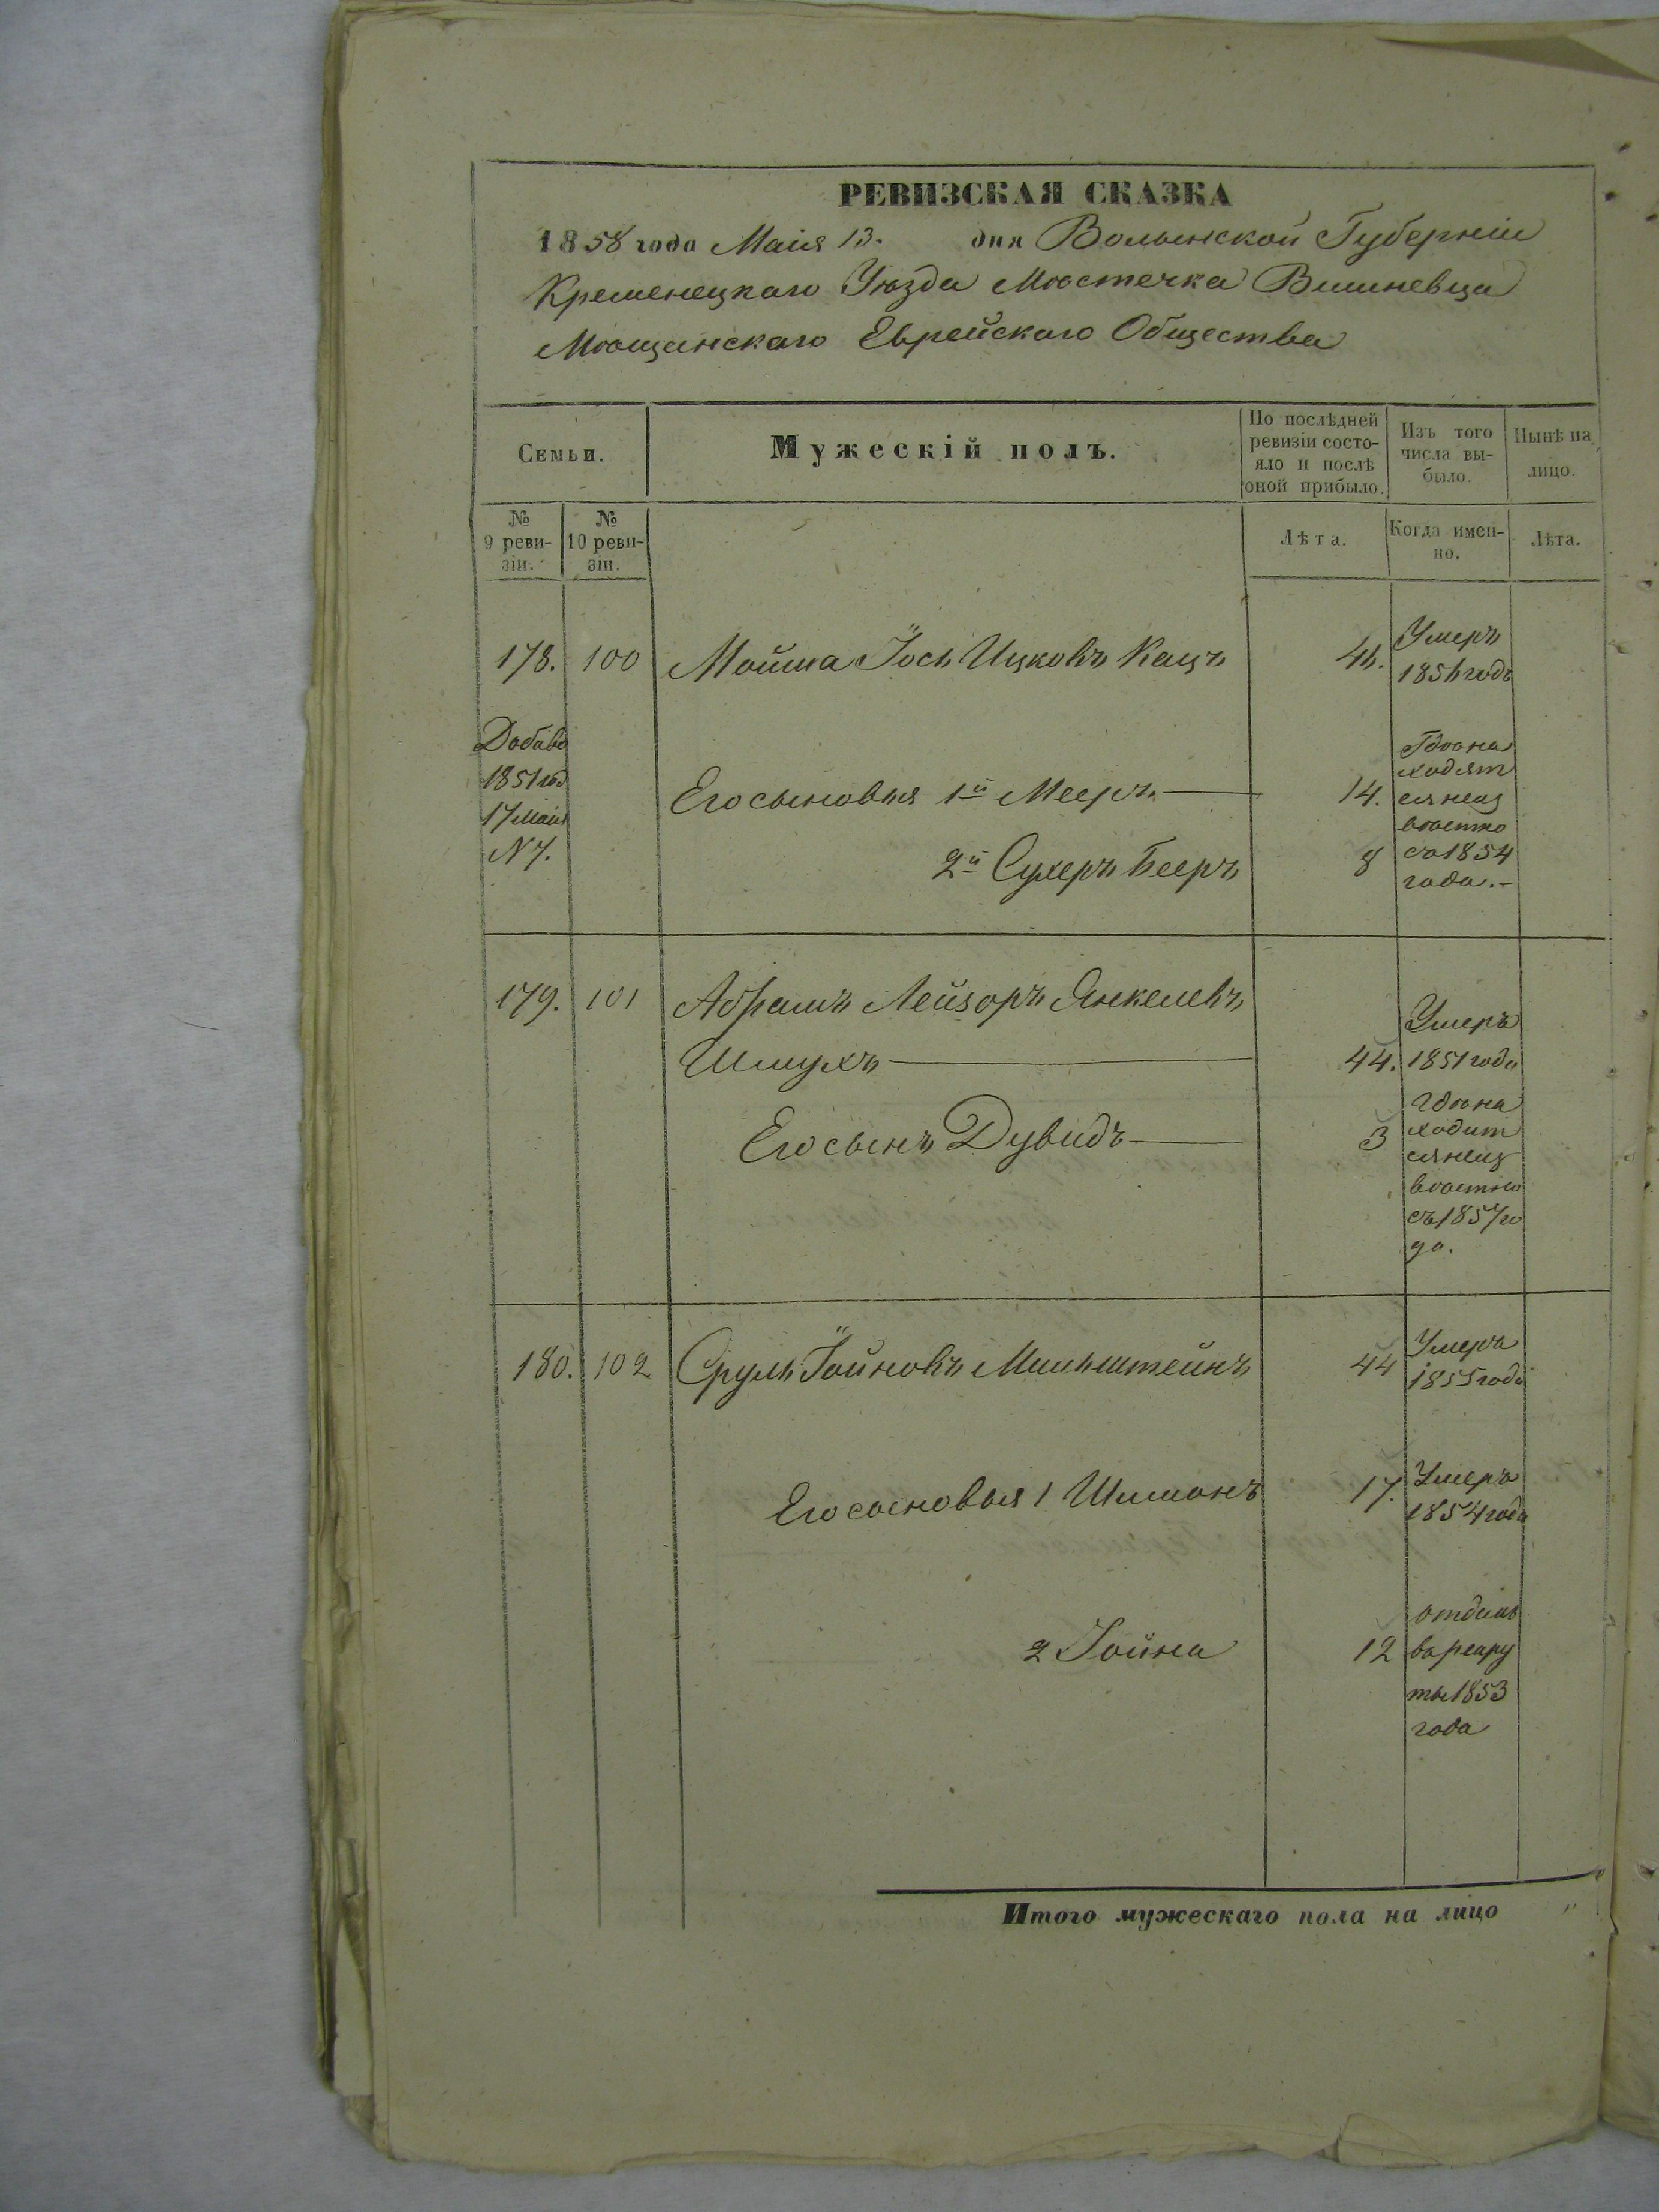 РЕВИЗСКАЯ СКАЗКА
1858 года Маія 13. дня Волынской Губерніи
Кременецкаго Уѣзда Мѣстечка Вишневца
Мѣщанскаго Еврейскаго Общества
Семьи.
Мужескій полъ.
По послѣдней
ревизіи состо-
яло и послѣ
оной прибыло.
Изъ того
числа вы-
было.
Нынѣ на
лицо.
№
9 реви-
зіи.
№
10 реви-
зіи.
Лѣта.
Когда имен-
но.
Лѣта.
178. 100 Мойша Іось Ицковъ Кацъ
Умеръ
Добав
1851 год
17 Маія
N 7.
Его сыновья 1й Мееръ 14.
2й Сухеръ Бееръ 8
Гдѣ на
ходят
ся неиз
вѣстно
съ 1854
года.-
179. 101 Абрамъ Лейзоръ Янкелевъ
Шмухъ 44.
Умеръ
1851 года
Его сынъ Дувидъ 3
гдѣ на
ходит
ся неиз
вѣстно
съ 1857 го
да.
180. 102 Сруль Іойновъ Мильштейнъ 44
Умеръ
1855 года
Его сыновья 1 Шимонъ 17.
Умеръ
1854 года
2 Іойна 12
отданъ
въ рекру
ты 1853
года
Итого мужескаго пола на лицо "